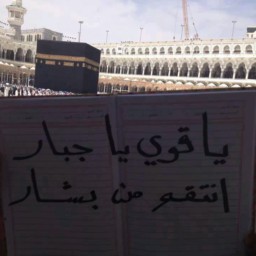 يا قوي يا جبار
انتقم من بشار